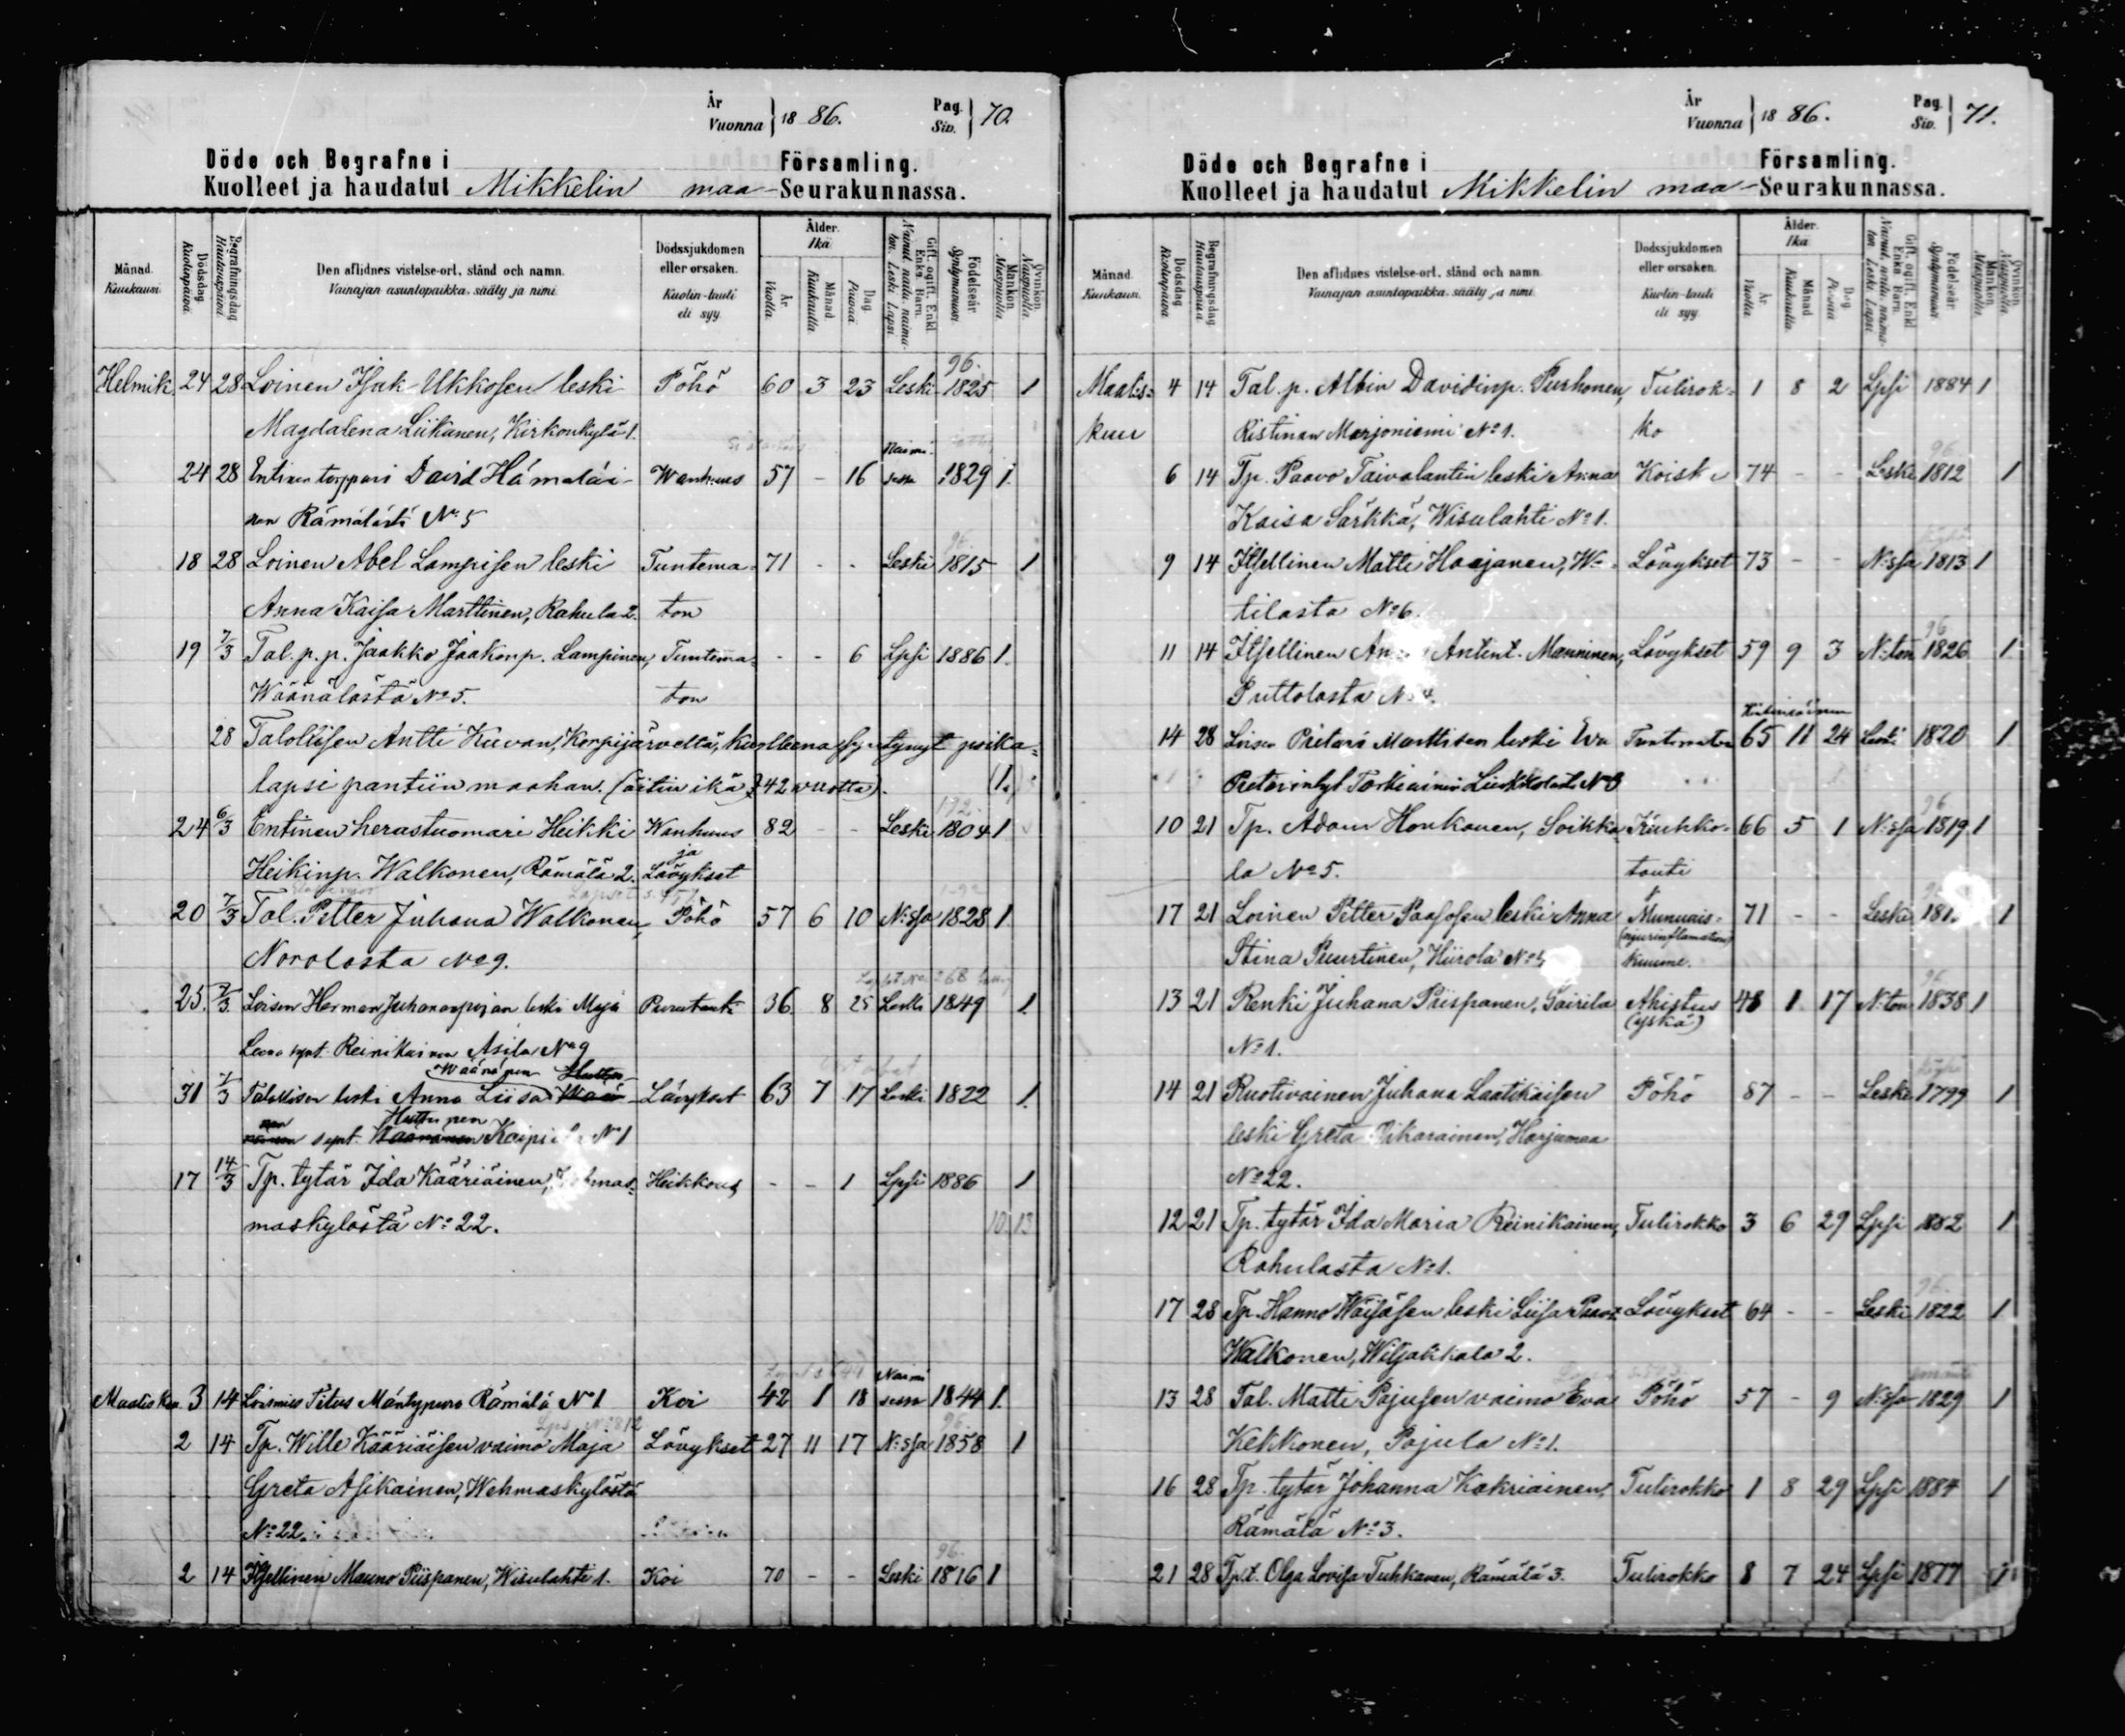 År
Vuonna } 18 86. Pag. Siv. } 70.
Döde och Begrafne i Församling.
Kuolleet ja haudatut Mikkelin maa- Seurakunnassa.
Månad. Kuukausi. Dödsdag. Kuolinpäivä. Begrafningsdag. Hautauspäivä. Den aflidnes vistelse-ort, stånd och namn. Vainajan asuntopaikka, sääty ja nimi. Dödssjukdomen eller orsaken. Kuolin-tauti eli syy. Ålder. Ikä. År Vuotta. Månad Kuukautta. Dag Päivää. Gift, ogift, Enkl. Enka Barn. Nainut, naim. naimaton. Leski. Lapsi. Födelseår. Syntymävuosi. Mankön. Miespuolia. Qvinkön. Naispuolia.
96.
Helmik. 24 28 Loinen Isak Ukkosen leski Pöhö 60 3 23 Leski 1825 1
Magdalena Liikanen, Kirkonkylä 1.
24 28 Entinen torppari David Hämäläi- Wanhuus 57 - 16 Naimisissa 1829 1.
nen Rämälästä No 5
18 28 Loinen Abel Lampisen leski Tuntema- 71 - - Leski 1815 1
Anna Kaisa Marttinen, Rahula 2. ton
19 7/3 Tal. p. p. Jaakko Jaakonp. Lampinen, Tuntema- - - 6 Lpsi 1886 1.
Wäänälästä No 5. ton
28 Talollisen Antti Kuvan, Korpijärveltä, kuolleena syntynyt poika-
lapsi pantiin maahan. (äitin ikä 42 vuotta). (1.)
172.
24 6/3 Entinen herastuomari Heikki Wanhuus 82 - - Leski 1804 1
Heikinp. Walkonen, Rämälä 2. ja Löyvkset
20 7/3 Tal. Petter Juhana Walkonen, Pöhö 57 6 10 N:ssa 1828 1.
Norolasta No 9.
25. 7/3 Loisen Herman Juhananpojan leski Maja Purutauti 36 8 25 Leski 1849 1.
Leena synt. Reinikainen Asila No 9
Väänänen
31 7/3 Talollisen leski Anna Liisa Lävykset 63 7 17 Leski 1822 1.
synt. No 1
17 14/3 Tp. tytär Ida Kääriäinen, Heikkous - - 1 Lpsi 1886 1
maskylästä No 22.
10 13
Maalisk. 3 14 Loismies Pitus Mäntypuro Rämälä No 1 Koi 42 1 18 Naimisissa 1844 1.
Lps. No 812
96.
2 14 Tp. Wille Kääriäisen vaimo Maja Lövykset 27 11 17 N:ssa 1858 1
Greta Asikainen, Wehmaskylästä
No 22.
96.
2 14 Itsellinen Mauno Piispanen, Wisulahti 1. Koi 70 - - Leski 1816 1
År
Vuonna } 18 86. Pag. Siv. } 71.
Döde och Begrafne i Församling.
Kuolleet ja haudatut Mikkelin maa- Seurakunnassa.
Månad. Kuukausi. Dödsdag. Kuolinpäivä. Begrafningsdag. Hautauspäivä. Den aflidnes vistelse-ort, stånd och namn. Vainajan asuntopaikka, sääty ja nimi. Dödssjukdomen eller orsaken. Kuolin-tauti eli syy. Ålder. Ikä. År Vuotta. Månad Kuukautta. Dag Päivää. Födelseår. Syntymävuosi. Mankön. Miespuolia. Qvinkön. Naispuolia.
Maalis- 4 14 Tal. p. Albin Davidinp. Purhonen, Tulirok- 1 8 2 Lpsi 1884 1
kuu Ristinan Marjoniemi No 1. ko
96.
6 14 Tp. Paavo Taivalantin leski Anna Koisk 74 - - Leski 1812 1
Kaisa Särkkä, Wisulahti No 1.
9 14 Itsellinen Matti Haajanen, Lövykset 73 - - N:ssa 1813 1
tilasta No 6.
96
11 14 Itsellinen Antint. Manninen, Lövykset 59 9 3 N:ton 1826 1
Puttolasta No 4.
14 28 Loisen Pietari Marttisen leski Eva Tuntematon 65 11 24 Leski 1820 1
Pietarintyt Torkiainen No 3
96.
10 21 Tp. Adam Honkanen, Soikka- Keuhko- 66 5 1 N:ssa 1819 1
la No 5. tauti
17 21 Loinen Petter Paasosen leski Anna Munuais- 71 - - Leski 181 1
(njurinflamation)
Stina Puurtinen, Hiirola No kuume.
96.
13 21 Renki Juhana Piispanen, Sairila Ahistus 48 1 17 N:ton 1838 1
No 1. (yskä)
14 21 Ruotivainen Juhana Laatikaisen Pöhö 87 - - Leski 1799 1
leski Greta Pikarainen, Harjumaa
No 22.
12 21 Tp. tytär Ida Maria Reinikainen, Tulirokko 3 6 29 Lpsi 1882 1
Rahulasta No 1.
96.
17 28 Tp. Hanno Wäisäsen leski Liisa Lövykset 64 - - Leski 1822 1
Walkonen, Wiljakkala 2.
13 28 Tal. Matti Pajusen vaimo Eva Pöhö 57 - 9 N:ssa 1829 1
Kekkonen, Pajula No 1.
16 28 Tp. tytär Johanna Kakriainen, Tulirokko 1 8 29 Lpsi 1884 1
Rämälä No 3.
21 28 Tp.t. Olga Lovisa Tuhkanen, Rämälä 3. Tulirokko 8 7 24 Lpsi 1877 1